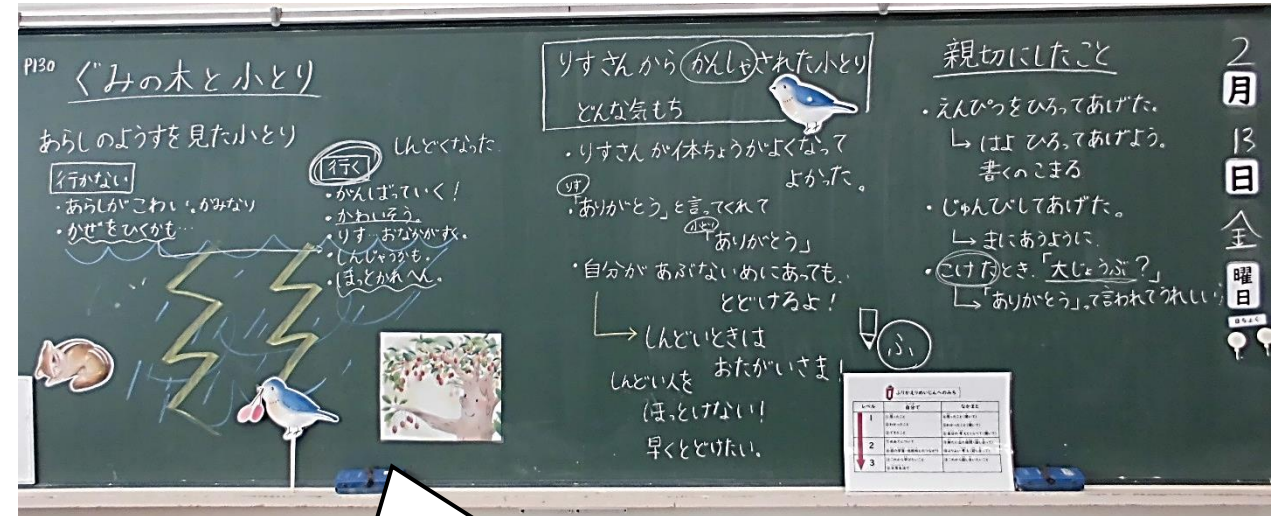 P130
ぐみの木と小とり
あらしのようすを見た小とり
行かない
・あらしがこわい。かみなり
・かぜをひくかも…
しんどくなった
行く
・がんばっていく！
・かわいそう。
・りす…おなかがすく。
・しんじゃうかも。
・ほっとかれへん。
りすさんからかんしゃされた小とり
どんな気もち
・りすさんが体ちょうがよくなって
よかった。
りす
・「ありがとう」と言ってくれて
小とり
「ありがとう」
・自分があぶないめにあっても、
とどけるよ！
→しんどいときは
おたがいさま！
しんどい人を
ほっとけない！
早くとどけたい。
親切にしたこと
・えんぴつをひろってあげた。
↳はよひろってあげよう。
書くのこまる
・じゅんびしてあげた。
↳まにあうように。
・こけたとき、「大じょうぶ？」
↳「ありがとう」って言われてうれしい
ふ
ふりかえりめいじんへのみち
レベル
自分で
なかまと
1
2
3
2
月
13
日
金
曜
日